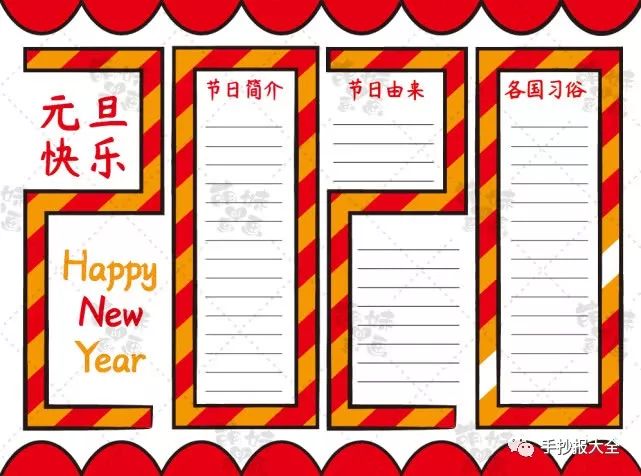 元旦
快乐
Happy
New
Year
节日简介
节日由来
各国习俗
手抄报大全